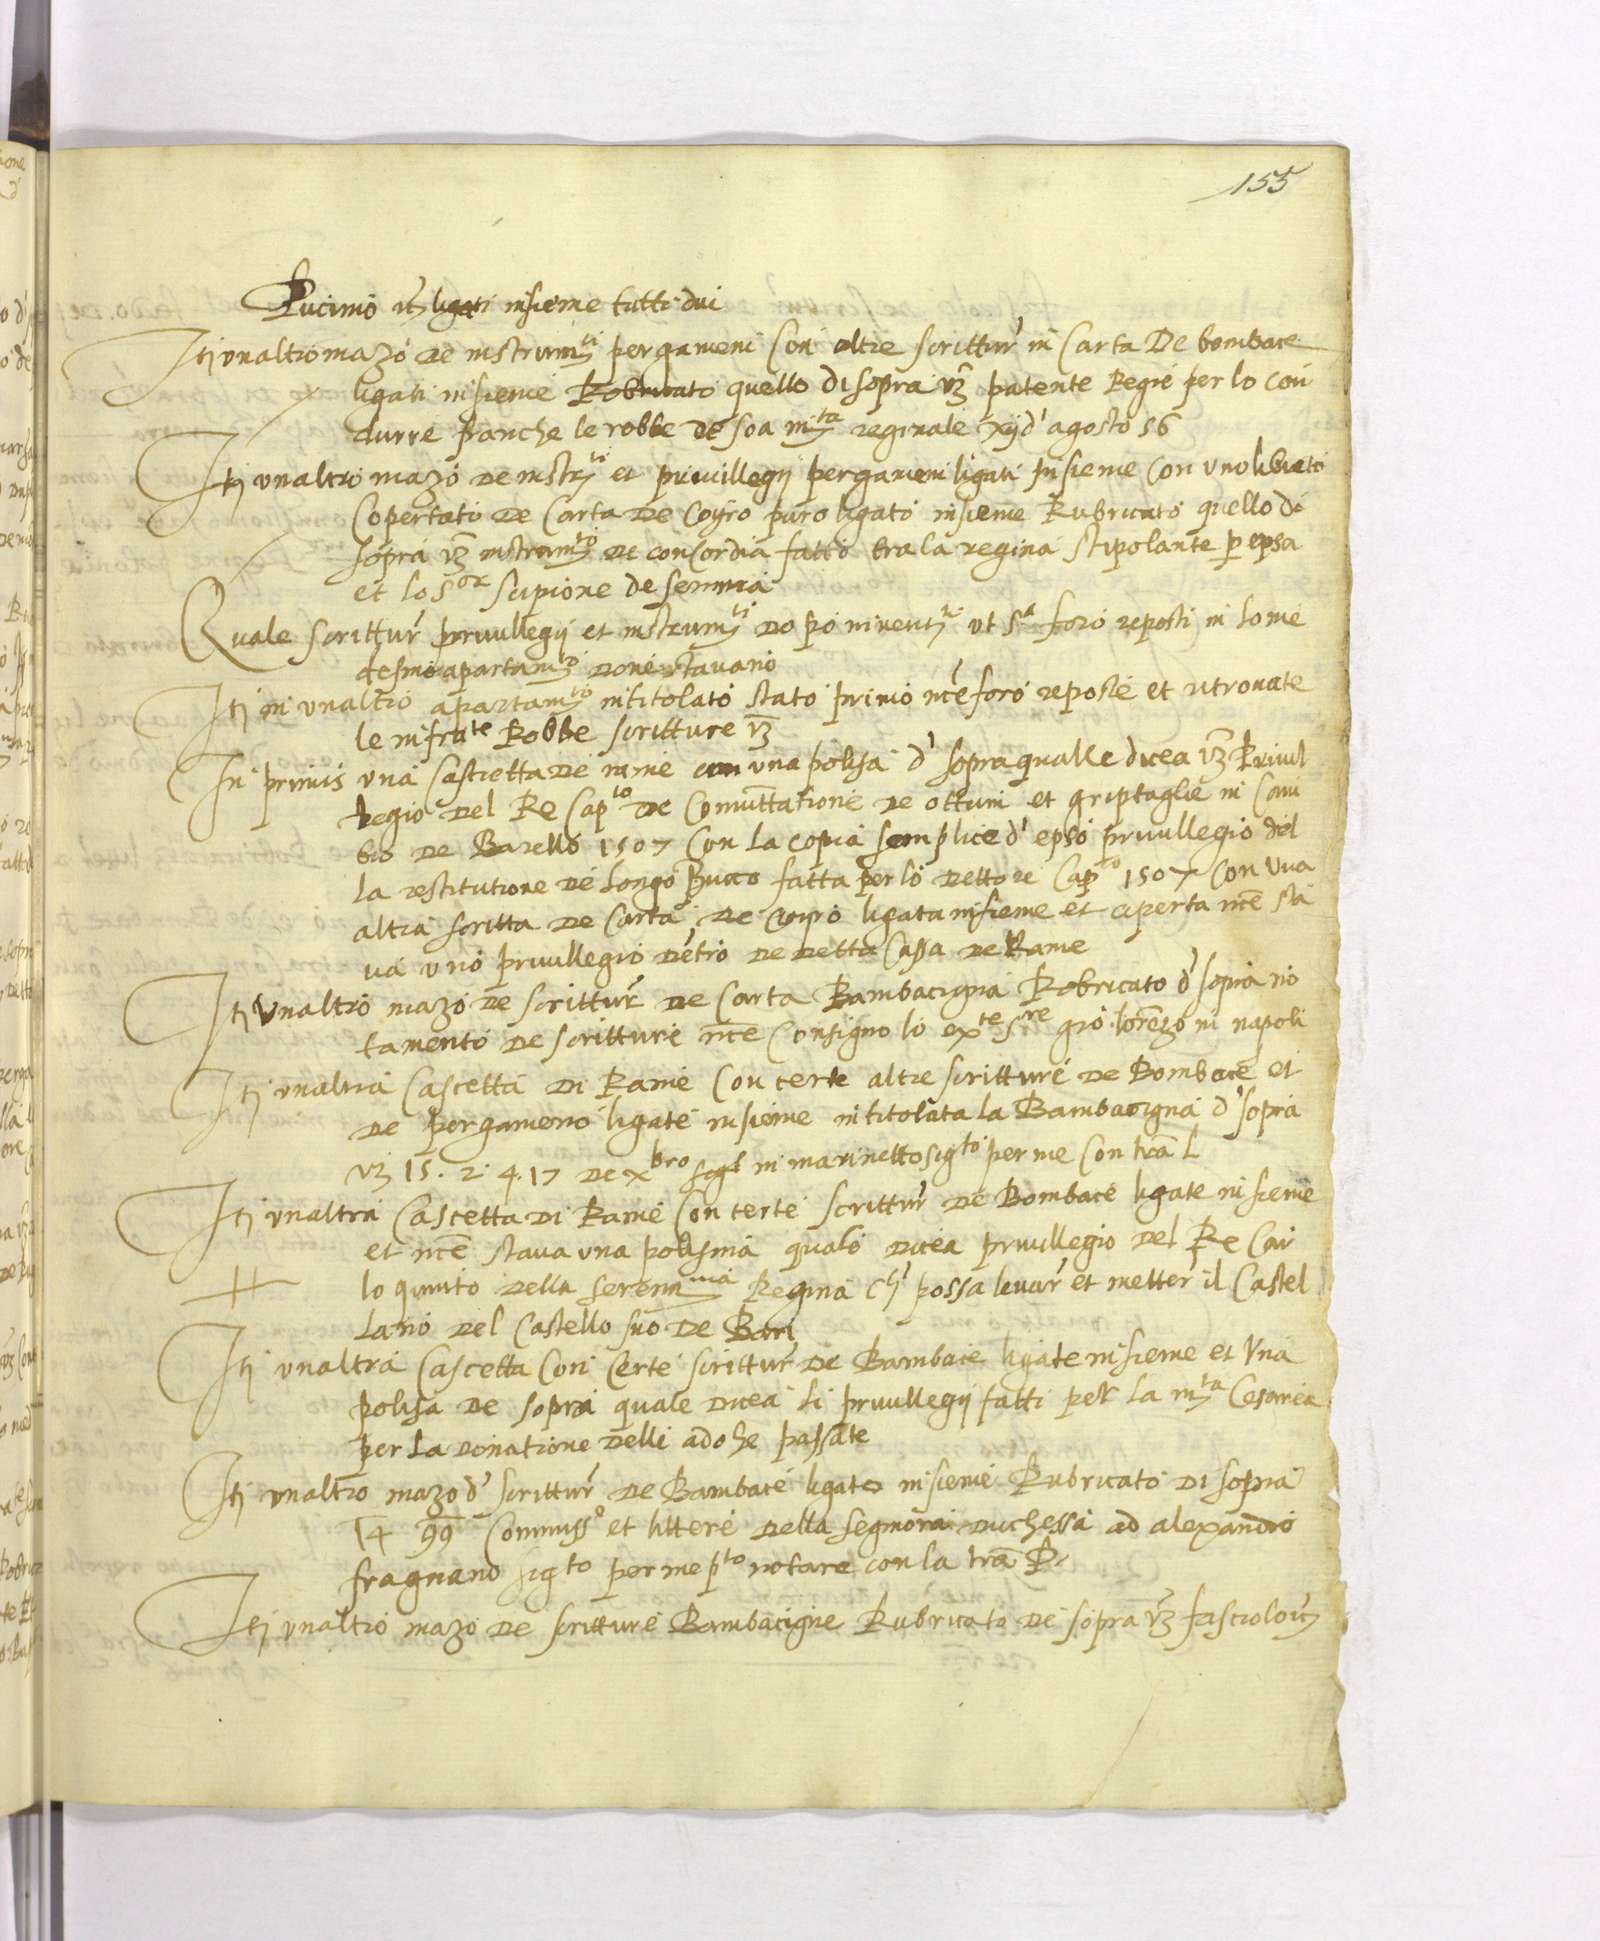 155
Pucino ligati insieme tutti dui
Itj unaltro mazo de instrumti pergameni con altre scrittur in Carta De bombace
ligati insieme Robricato quello di sopra vz patente Regie per lo con
durre franche le robbe de soa mta reginale xij d'agosto 56
Itj unaltro mazo de instrti et privillegij pergameni ligati insieme con uno libreto
Copertato de Carta De Coyro puro ligato insieme Rubricato quello di
sopra vz instrumto de concordia fatto tra la regina stipolante p epsa
et lo sor scipione de somma
Quale scrittur privillegij et instrumti do po inventti ut sa foro reposti in lo me
desmo apartamto done stavano
Itj in unaltro apartamto intitolato stato primo nce foro reposte et ritrovate
le infrate Robbe scritture vz
In primis una Cascietta de rame con una polisa d' sopra qualle dicea vz Privil
legio del Re Capto de Comuttatione de ottuni et griptaglie in Cam
bio de Barello 1507 Con la copia semplice d' epso privillegio del
la restitutione de longo Bucco fatta per lo detto re Capto 1507 con una
altra scritta de Carta de coyro ligata insieme et aperta nce sta
va uno privillegio detro de detta Cassa de Rame
Itj Unaltro mazo de scrittur de Carta Bambacigna Robricato d' sopra no
tamento de scritture nce Consigno lo exte sre gio. lorenzo in napoli
Itj unaltra Cascetta di Rame Con certe altre scritture de Bombace et
de pergameno ligate insieme intitolata la Bambacigna d' sopra
vz 15. 2. 4. 17 de xbro in marinetto sigto per me Con lra L
Itj unaltra Cascetta di Rame Con certe scrittur de Bombace ligate insieme
et nce stava una polisina quale dicea privillegio del Re Car
lo quinto della serenma Regina ch possa levar et metter il Castel
lano del Castello suo de Bari
Itj unaltra Cascetta Con Certe scrittur de Bambace ligate insieme et Una
polisa de sopra quale dicea li privillegij fatti per la mta Cesarea
per la donatione delli adohe passate
Itj unaltro mazo d' scrittur de Bambace ligato insieme Rubricato di sopra
14 99 Commisso et littere della segnora duchessa ad alexandro
fragnano sigto per me pto notare con la lra P
Itj unaltro mazo de scritture Bambacigne Rubricato de sopra vz